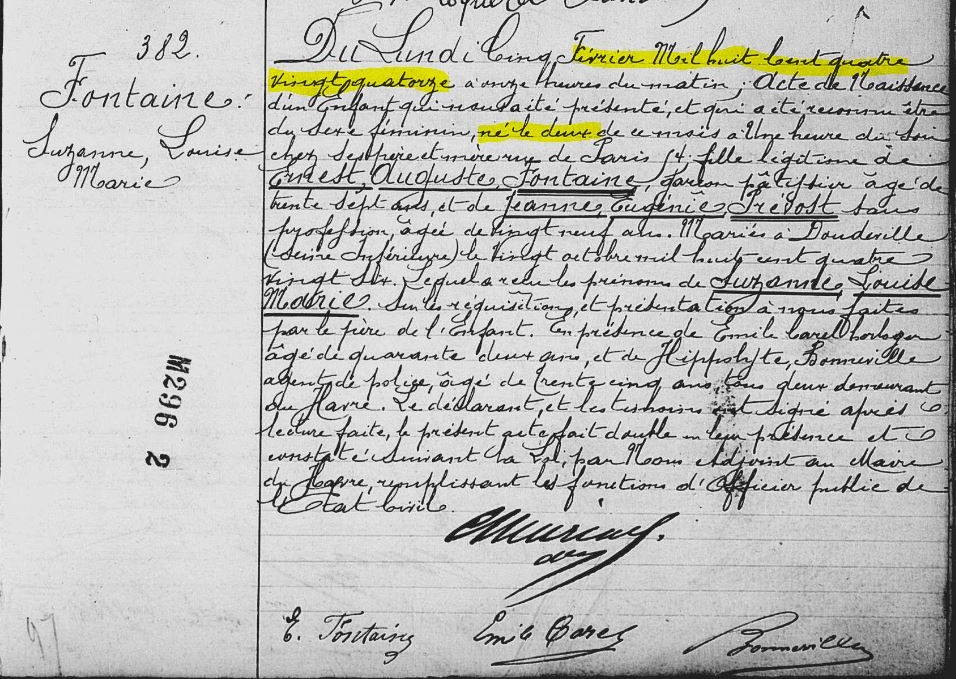 382.
Fontaine.
Suzanne, Louise
Marie
Du Lundi Cinq Février Mil huit Cent quatre
vingt quatorze à onze heures du matin ; Acte de Naissance
d'un Enfant qui nous a été présenté, et qui a été reconnu être
du sexe féminin, né le deux de ce mois à Une heure du soir
chez ses père et mère rue de Paris 14. fille légitime de
Ernest, Auguste, Fontaine, garçon pâtissier âgé de
trente sept ans, et de Jeanne, Eugénie, Prévost sans
profession, âgée de vingt neuf ans. Mariés à Doudeville
(Seine Inférieure) le Vingt octobre mil huit cent quatre
vingt six. Lequel a reçu les prénoms de Suzanne, Louise
Marie. Sur les réquisitions, et présentation à nous faites
par le père de l'Enfant. En présence de Emile Carel horloger
âgé de quarante deux ans, et de Hippolyte, Bonneville
agent de police, âgé de trente cinq ans, tous deux demeurant
au Havre. Le déclarant, et les témoins ont signé après
lecture faite, le présent acte fait double en leur présence et
constaté suivant la Loi, par Nous Adjoint au Maire
du Havre, remplissant les fonctions d'Officier public de
l'Etat Civil.
M296 2
E. Fontaine
Emile Carel
Bonneville
97